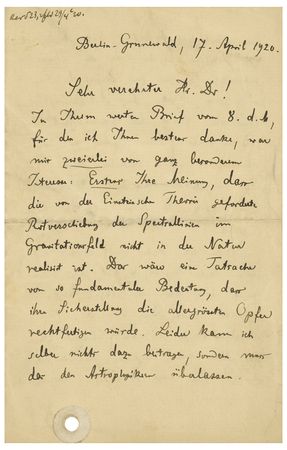 Berlin-Grunewald, 17. April 1920.
Sehr verehrter Hr. Dr!
In Ihrem werten Brief vom 8. d. M,
für den ich Ihnen bestens danke, war
mir zweierlei von ganz besonderem
Interesse: Erstens Ihre Meinung, dass
die von der Einsteinschen Theorie geforderte
Rotverschiebung der Spectrallinien im
Gravitationsfeld nicht in der Natur
realisirt ist. Das wäre eine Tatsache
von so fundamentaler Bedeutung, dass
ihre Sicherstellung die allergrössten Opfer
rechtfertigen würde. Leider kann ich
selber nichts dazu beitragen, sondern muss
das den Astrophysikern überlassen.